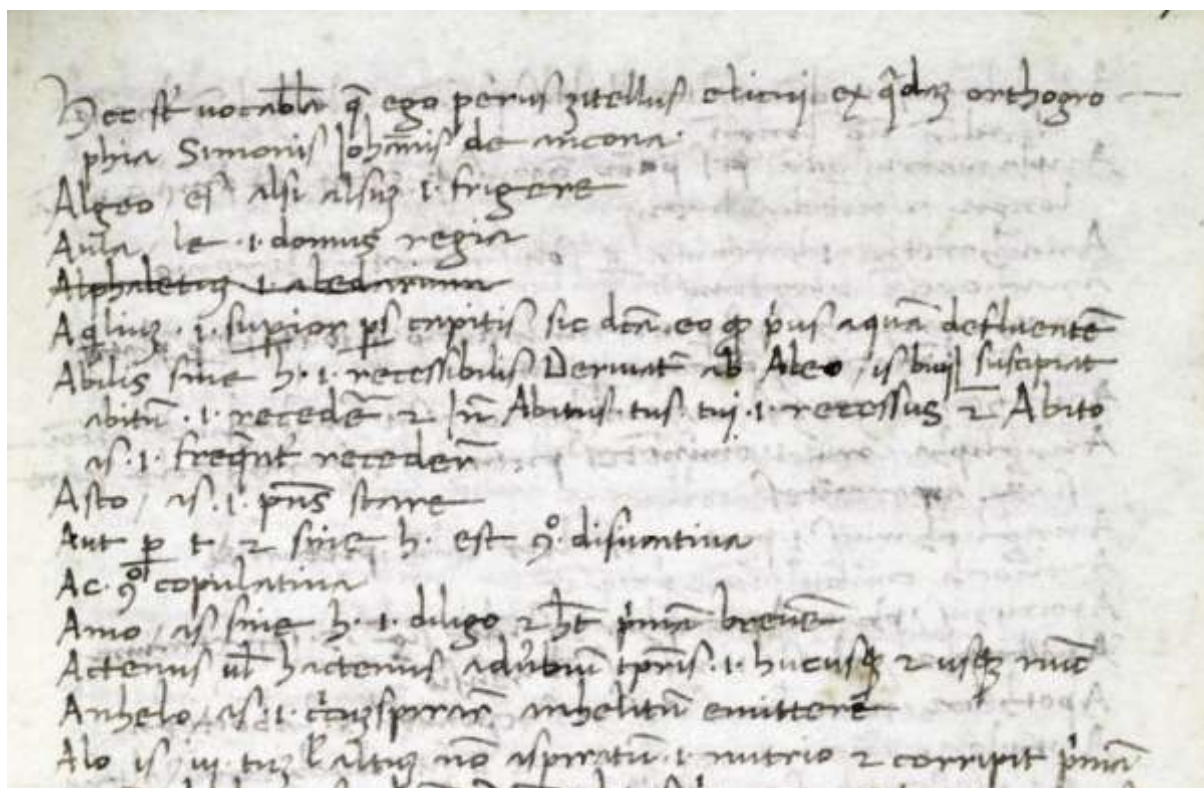 Hec st' uocabl̄a q̄ ego petrus zitellus elicui ex q̄daꝫ orthogro
phia Simonis Joħannis de ancona·
Algeo es alsi alsuꝫ ·i· frigere
Aula, le ·i· domus regia
Alphabetuꝫ ·i· abedarium
Aq̇liuꝫ · i· suꝑior ꝑs capitis sic dc̄a eo ꝙ p̍us aquā defluentē
Abilis sine h· ·i· recessibilis Deriuat̄ ab Abeo, is biuj suscipiat
abitū ·i· recedere ⁊ Jn̄ Abitus·tus·tuj ·i· recessus ⁊ Abito
as ·i· freq̄nt' recedere
Asto, as ·i· pn̄s stare
Aut ꝑ t, ⁊ sine h· est ꝯ° disiuntiua
Ac· ꝯ° copulatiua
Amo, as sine h· ·i· diligo ⁊ ħt p̍mā breuē
Actenus ul̄ hactenus aduerbiū tp̄ris ·i· hucusqꝫ ⁊ usqꝫ nūc
Anhelo, as ·i· anhelitū emittere
Alo is ui·tuꝫ l' altuꝫ nō aspiratū ·i· nutrio ⁊ corripit p̍mā